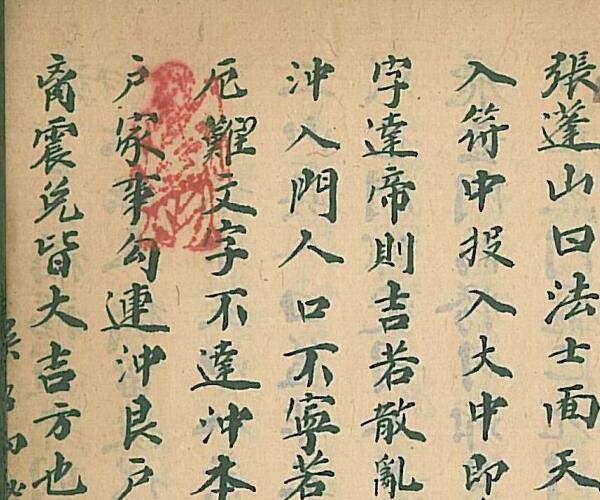 張蓬山曰法士面天
入符中投入大中即
字達帝則吉若散亂
沖入門人口不寧若
厄難文字不達沖本
户家事勾連沖艮户
裔震兑皆大吉方也